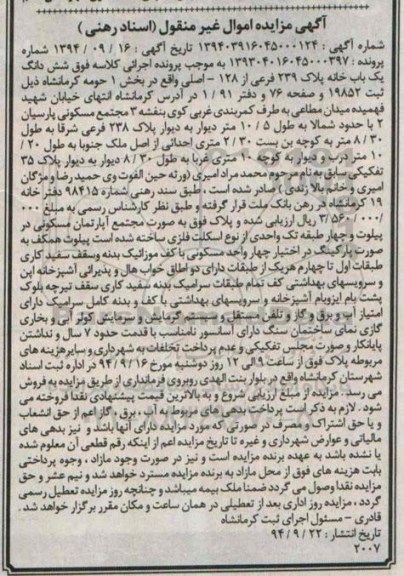 آگهی مزایده اموال غیر منقول (اسناد رهنی)
شماره آگهی : ۱۳۹۴۰۳۹۱۶۰۴۵۰۰۰۱۲۴ تاریخ آگهی : ۱۶ / ۰۹ / ۱۳۹۴ شماره
پرونده : ۱۳۹۳۰۴۰۱۶۰۴۵۰۰۰۳۹۷ به موجب پرونده اجرائی کلاسه فوق شش دانگ
یک باب خانه پلاک ۲۳۹ فرعی از ۱۲۸ - اصلی واقع در بخش ۱ حومه کرمانشاه ذیل
ثبت ۱۹۸۵۲ و صفحه ۷۶ و دفتر ۹۱ / ۱ در آدرس کرمانشاه انتهای خیابان شهید
فهمیده میدان مطاعی به طرف کمربندی غربی کوی بنفشه ۳ مجتمع مسکونی پارسیان
۲ با حدود شمالا به طول ۵ / ۱۰ متر دیوار به دیوار پلاک ۲۳۸ فرعی شرقا به طول
۳۰ / ۸ متر به کوچه بن بست ۳۰ / ۲ متری احداثی از اصل ملک جنوبا به طول ۲۰ /
۱۰ متر درب و دیوار به کوچه ۱۰ متری غربا به طول ۳۰ / ۸ دیوار به دیوار پلاک ۳۵
تفکیکی سابق به نام مرحوم محمد مراد امیری (ورثه حین الفوت وی حمید رضا و مژگان
امیری و خانم بالا زندی ) صادر شده است . طبق سند رهنی شماره ۹۸۴۱۵ دفتر خانه
۱۹ کرمانشاه در رهن بانک ملت قرار گرفته و طبق نظر کارشناس رسمی به مبلغ ۰۰۰
/۰۰۰/ ۳/۵۶۰ ریال ارزیابی شده و پلاک فوق به صورت مجتمع آپارتمان مسکونی در
پیلوت و چهار طبقه تک واحدی از نوع اسکلت فلزی ساخته شده است پیلوت همکف به
صورت پارکینگ در اختیار چهار واحد مسکونی با کف موزائیک بدنه وسقف سفید کاری
طبقات اول تا چهارم هریک از طبقات دارای دو اطاق خواب هال و پذیرائی آشپزخانه اپن
و سرویسهای بهداشتی کف تمام طبقات سرامیک بدنه سفید کاری سقف تیرچه بلوک
پشت بام ایزوبام آشپزخانه و سرویسهای بهداشتی با کف و بدنه کامل سرامیک دارای
امتیاز آب و برق و گاز و تلفن مستقل و سیستم گرمایش و سرمایش کولر آبی و بخاری
گازی نمای ساختمان سنگ دارای آسانسور نامناسب با قدمت حدود ۷ سال و نداشتن
پایانکار و صورت مجلس تفکیکی و عدم پرداخت تخلفات به شهرداری و سایر هزینه های
مربوطه پلاک فوق از ساعت ۹ الی ۱۲ روز دوشنبه مورخ ۹۴/۹/۱۶ در اداره ثبت اسناد
شهرستان کرمانشاه واقع در بلوار بنت الهدی روبروی فرمانداری از طریق مزایده به فروش
می رسد . مزایده از مبلغ ارزیابی شروع و به بالاترین قیمت پیشنهادی نقدا فروخته می
شود . لازم به ذکر است پرداخت بدهی های مربوط به آب ، برق ، گاز اعم از حق انشعاب
و یا حق اشتراک و مصرف در صورتی که مورد مزایده دارای آنها باشد و نیز بدهی های
مالیاتی و عوارض شهرداری و غیره تا تاریخ مزایده اعم از اینکه رقم قطعی آن معلوم شده
یا نشده باشد به عهده برنده مزایده است و نیز در صورت وجود مازاد ، وجوه پرداختی
بابت هزینه های فوق از محل مازاد به برنده مزایده مسترد خواهد شد و نیم عشر و حق
مزایده نقدا وصول می گردد ضمنا ملک بیمه میباشد و چنانچه روز مزایده تعطیل رسمی
گردد ، مزایده روز اداری بعد از تعطیلی در همان ساعت و مکان مقرر برگزار خواهد شد .
قادری - مسئول اجرای ثبت کرمانشاه
تاریخ انتشار : ۹۴/۹/۲۲
۲۰۰۷